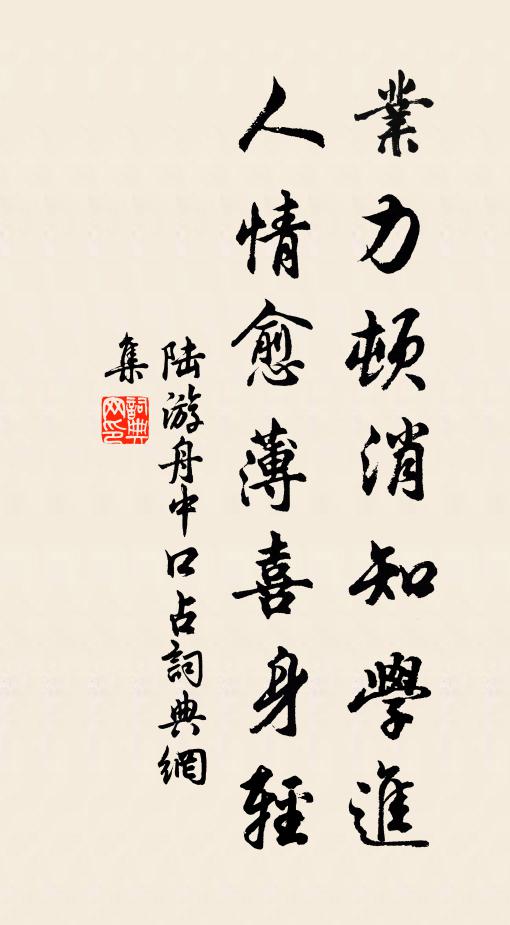 業力頓消知學進
人情愈薄喜身輕
陆游舟中口占詞典網
集
詞典
网印